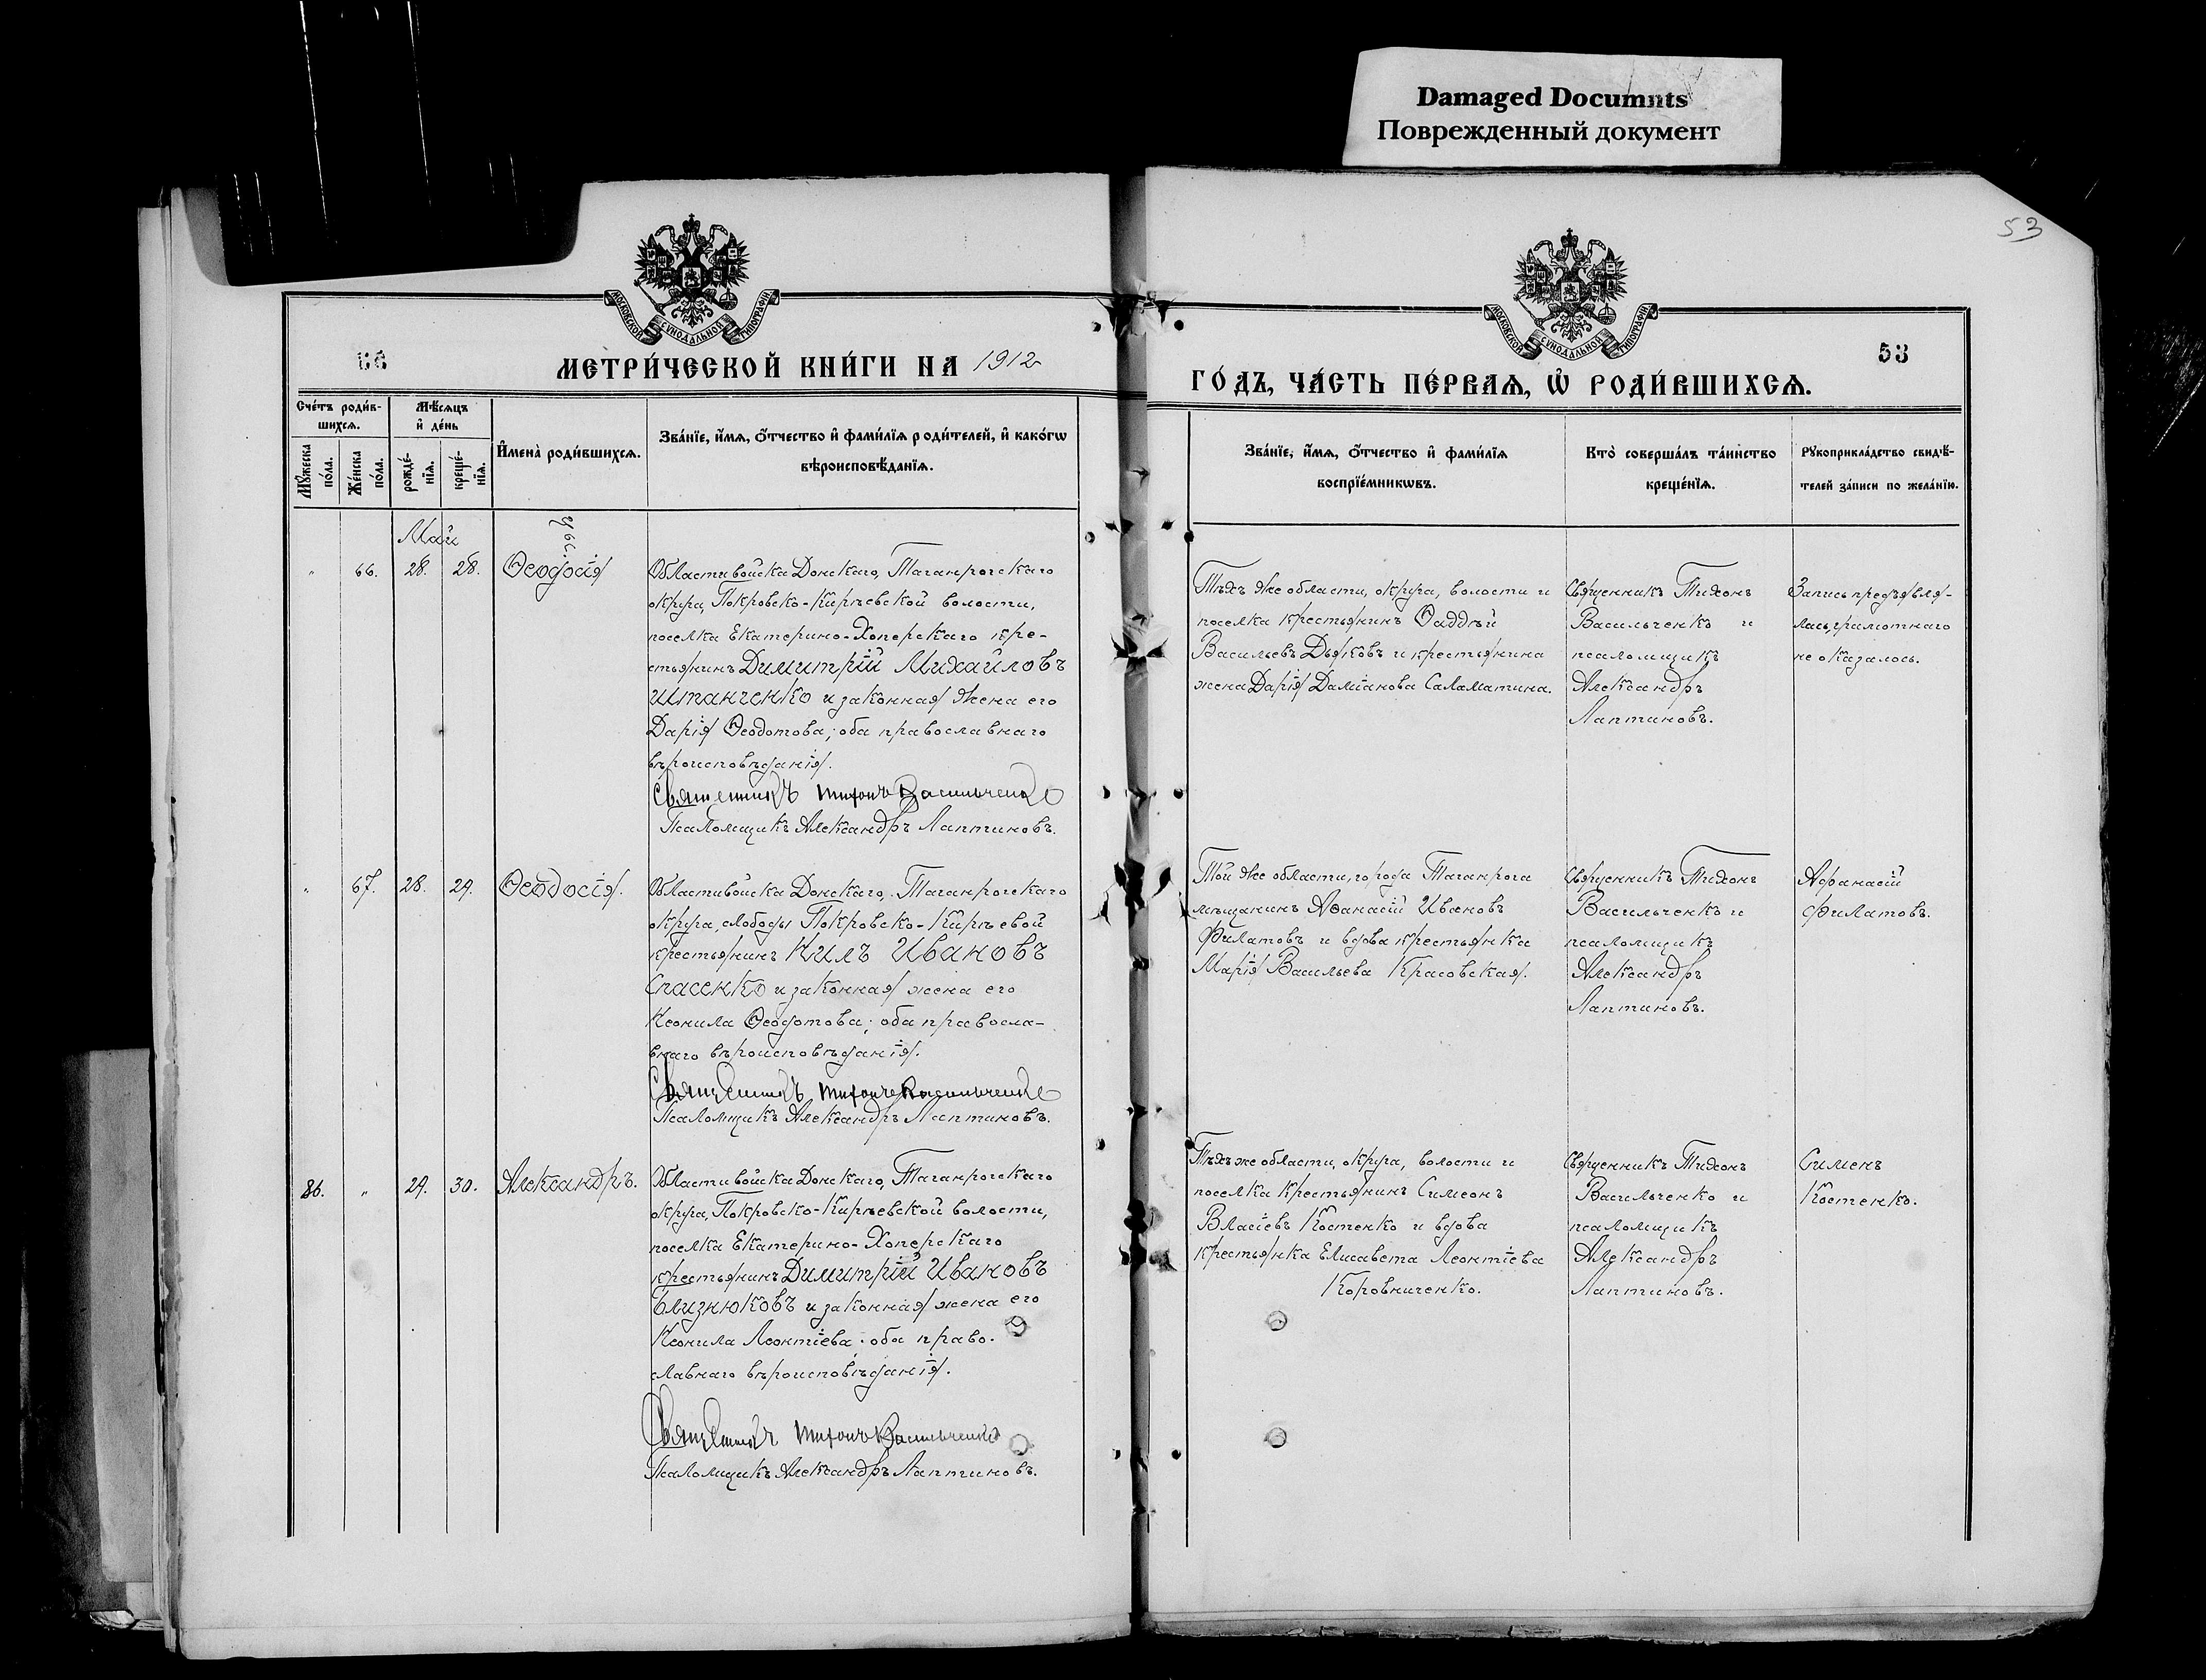 Damaged Documnts
Поврежденный документ
53
МОСКОВСКОЙ СУНОДАЛЬНОЙ ТИПОГРАФІИ
МОСКОВСКОЙ СУНОДАЛЬНОЙ ТИПОГРАФІИ
53
МЕТРИ́ЧЕСКОЙ КНИ́ГИ НА 1912
ГО́ДЪ, ЧА́СТЬ ПЕ́РВАѦ, Ѡ҆ РОДИ́ВШИХСѦ.
Сче́тъ роди́в-
шихсѧ.
Мѣ́сѧцъ
и҆ де́нь
Мꙋ́жеска
по́ла.
Же́нска
по́ла.
рожде́-
нїѧ.
креще́-
нїѧ.
И҆мена̀ роди́вшихсѧ.
Зва́нїе, и҆́мѧ, ѻ҆́тчество и҆ фами́лїѧ роди́телей, и҆ како́гѡ
вѣроисповѣ́данїѧ.
Зва́нїе, и҆́мѧ, ѻ҆́тчество и҆ фами́лїѧ
воспрїе́мникѡвъ.
Кто̀ соверша́лъ та́инство
креще́нїѧ.
Рꙋкоприкла́дство свидѣ́-
телей за́писи по жела́нїю.
Май
" 66. 28. 28. Ѳеодосія
Области войска Донскаго, Таганрогскаго
округа, Покровско-Кирѣевской волости,
поселка Екатерино-Хоперскаго кре-
стьянинъ Димитрій Михайловъ
Шпанченко и законная жена его
Дарія Ѳеодотова; оба православнаго
вѣроисповѣданія.
Священникъ Тихонъ Васильченко
Псаломщикъ Александръ Лаптиновъ.
Тѣхъ же области, округа, волости и
поселка крестьянинъ Ѳаддѣй
Васильевъ Дьяковъ и крестьянина
жена Дарія Даміанова Саламатина.
Священникъ Тихонъ
Васильченко и
псаломщикъ
Александръ
Лаптиновъ.
Запись предъявля-
лась, грамотнаго
не оказалось.
" 67. 28. 29. Ѳеодосія.
Области войска Донскаго, Таганрогскаго
округа, слободы Покровско-Кирѣевой
крестьянинъ Нилъ Ивановъ
Спасенко и законная жена его
Неонила Ѳеодотова; оба правосла-
внаго вѣроисповѣданія.
Священникъ Тихонъ Васильченко
Псаломщикъ Александръ Лаптиновъ.
Той же области, города Таганрога
мѣщанинъ Аѳанасій Ивановъ
Филатовъ и вдова крестьянка
Марія Васильева Красовская.
Священникъ Тихонъ
Васильченко и
псаломщикъ
Александръ
Лаптиновъ.
Афанасій
Филатовъ.
86. " 29. 30. Александръ.
Области войска Донскаго, Таганрогскаго
округа, Покровско-Кирѣевской волости,
поселка Екатерино-Хоперскаго
крестьянинъ Димитрій Ивановъ
Близнюковъ и законная жена его
Неонила Леонтіева; оба право-
славнаго вѣроисповѣданія.
Священникъ Тихонъ Васильченко
Псаломщикъ Александръ Лаптиновъ.
Тѣхъ же области, округа, волости и
поселка крестьянинъ Симеонъ
Власіевъ Костенко и вдова
крестьянка Елисавета Леонтіева
Коровниченко.
Священникъ Тихонъ
Васильченко и
псаломщикъ
Александръ
Лаптиновъ.
Сименъ
Костенко.